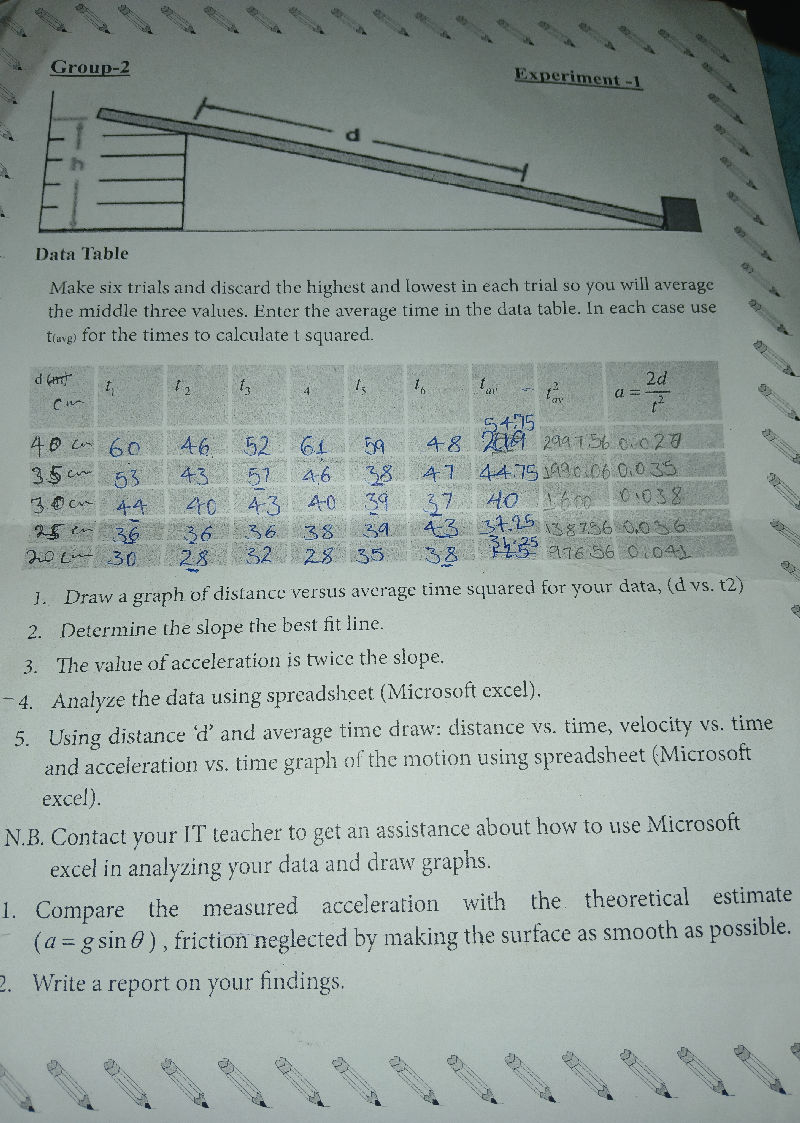 Group-2
Experiment -1
d
h
Data Table
Make six trials and discard the highest and lowest in each trial so you will average
the middle three values. Enter the average time in the data table. In each case use
t(avg) for the times to calculate t squared.
d (m) t₁ t₂ t₃ 4 t₅ t₆ t_av t²_av a = 2d/t²
cm
54.75
40 cm 60 46 52 61 59 48 2997.56 0.027
35 cm 53 43 51 46 38 47 44.75 0.035
30 cm 44 40 43 40 39 37 40 1600 0.038
25 cm 36 36 36 38 39 43 37.25 1387.56 0.036
31.25
20 cm 30 28 32 28 35 38 976.56 0.041
1. Draw a graph of distance versus average time squared for your data, (d vs. t2)
2. Determine the slope the best fit line.
3. The value of acceleration is twice the slope.
4. Analyze the data using spreadsheet (Microsoft excel).
5. Using distance ‘d’ and average time draw: distance vs. time, velocity vs. time
and acceleration vs. time graph of the motion using spreadsheet (Microsoft
excel).
N.B. Contact your IT teacher to get an assistance about how to use Microsoft
excel in analyzing your data and draw graphs.
1. Compare the measured acceleration with the theoretical estimate
(a = g sin θ), friction neglected by making the surface as smooth as possible.
2. Write a report on your findings.